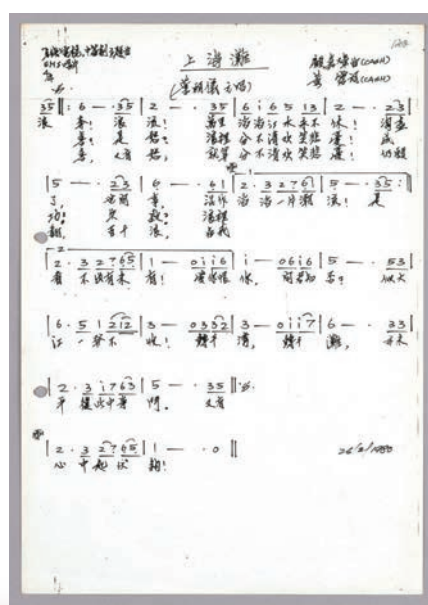 上海灘
(葉麗儀主唱)
顧嘉煇曲(CASH)
黃霑詞(CASH)
35 ‖: 6 — · 35 | 2 — · 35 | 6 i 65 13 | 2 — · 23 |
浪 奔! 浪 流! 萬里 滔滔江水永不 休! 淘盡
喜! 是 愁? 浪裡 分不清歡笑悲 憂! 成
喜, 又有 愁, 就算 分不清歡笑悲 憂! 仍願
| 5 — · 23 | 6 — · 61 | 2 · 3 27 61 | 5 — · 35 :|
了, 世間 事, 混作 滔滔一片潮 流! 是
功! 失 敗? 浪裡
翻, 百千 浪, 在我
2
| 2 · 3 27 65 | 1 — · 0iii | i — · 06i6 | 5 — · 53
看不出有未 有! 愛你恨 你, 問君知 否? 似大
| 6 · 5 1 212 | 3 — · 0332 | 3 — · 0ii7 | 6 — · 33 |
江一發不 收! 轉千 灣, 轉千 灘, 亦未
| 2 · 3 i7 63 | 5 — · 35 ‖
平復此中爭 鬥. 又有
| 2 · 3 27 65 | 1 — · 0 ‖
心中起伏 夠!